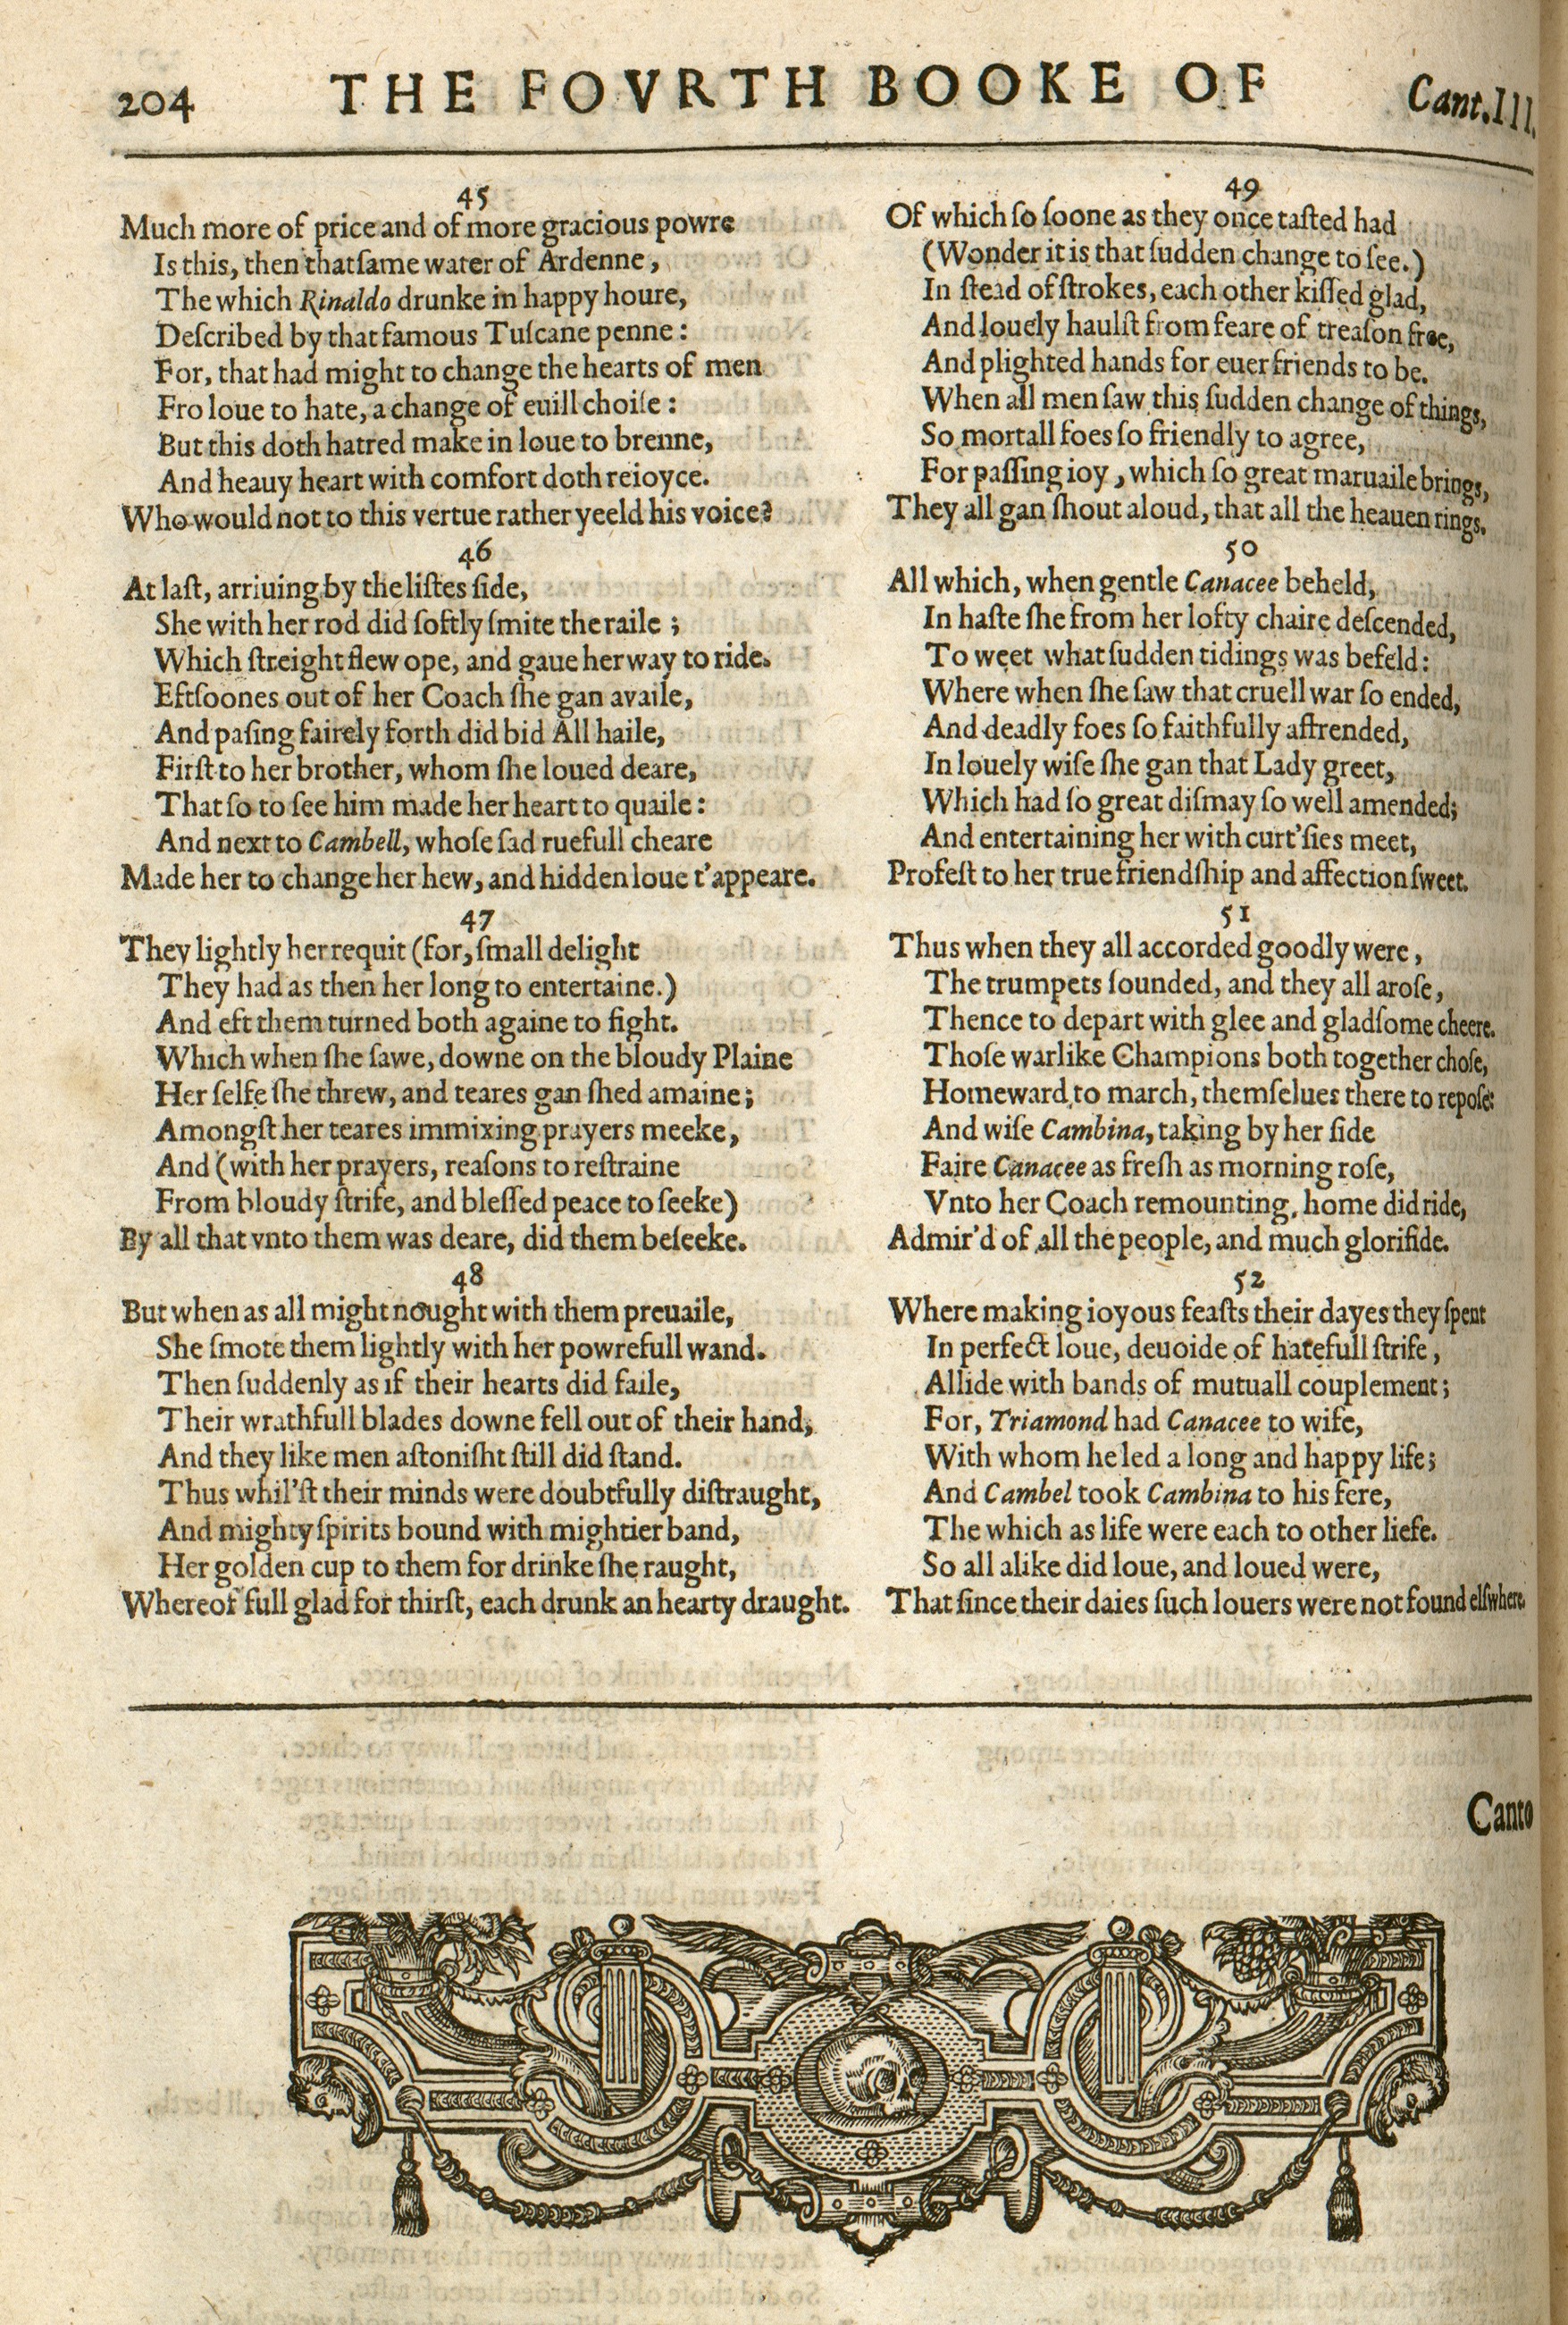 204 THE FOVRTH BOOKE OF Cant.III.
45
Much more of price and of more gracious powre
Is this, then that ſame water of Ardenne,
The which Rinaldo drunke in happy houre,
Deſcribed by that famous Tuſcane penne:
For, that had might to change the hearts of men
Fro loue to hate, a change of euill choiſe:
But this doth hatred make in loue to brenne,
And heauy heart with comfort doth reioyce.
Who would not to this vertue rather yeeld his voice?
46
At laſt, arriuing by the liſtes ſide,
She with her rod did ſoftly ſmite the raile;
Which ſtreight flew ope, and gaue her way to ride.
Eftſoones out of her Coach ſhe gan availe,
And paſing fairely forth did bid All haile,
Firſt to her brother, whom ſhe loued deare,
That ſo to ſee him made her heart to quaile:
And next to Cambell, whoſe ſad ruefull cheare
Made her to change her hew, and hidden loue t'appeare.
47
They lightly her requit (for, ſmall delight
They had as then her long to entertaine.)
And eft them turned both againe to fight.
Which when ſhe ſawe, downe on the bloudy Plaine
Her ſelfe ſhe threw, and teares gan ſhed amaine;
Amongſt her teares immixing prayers meeke,
And (with her prayers, reaſons to reſtraine
From bloudy ſtrife, and bleſſed peace to ſeeke)
By all that vnto them was deare, did them beſeeke.
48
But when as all might nought with them preuaile,
She ſmote them lightly with her powrefull wand.
Then ſuddenly as if their hearts did faile,
Their wrathfull blades downe fell out of their hand,
And they like men aſtoniſht ſtill did ſtand.
Thus whil'ſt their minds were doubtfully diſtraught,
And mighty ſpirits bound with mightier band,
Her golden cup to them for drinke ſhe raught,
Whereof full glad for thirſt, each drunk an hearty draught.
49
Of which ſo ſoone as they once taſted had
(Wonder it is that ſudden change to ſee.)
In ſtead of ſtrokes, each other kiſſed glad,
And louely haulſt from feare of treaſon free,
And plighted hands for euer friends to be.
When all men ſaw this ſudden change of things,
So mortall foes ſo friendly to agree,
For paſſing ioy, which ſo great maruaile brings,
They all gan ſhout aloud, that all the heauen rings.
50
All which, when gentle Canacee beheld,
In haſte ſhe from her lofty chaire deſcended,
To weet what ſudden tidings was befeld:
Where when ſhe ſaw that cruell war ſo ended,
And deadly foes ſo faithfully affrended,
In louely wiſe ſhe gan that Lady greet,
Which had ſo great diſmay ſo well amended;
And entertaining her with curt'ſies meet,
Profeſt to her true friendſhip and affection ſweet.
51
Thus when they all accorded goodly were,
The trumpets ſounded, and they all aroſe,
Thence to depart with glee and gladſome cheere.
Thoſe warlike Champions both together choſe,
Homeward to march, themſelues there to repoſe:
And wiſe Cambina, taking by her ſide
Faire Canacee as freſh as morning roſe,
Vnto her Coach remounting, home did ride,
Admir'd of all the people, and much glorifide.
52
Where making ioyous feaſts their dayes they ſpent
In perfect loue, deuoide of hatefull ſtrife,
Allide with bands of mutuall couplement;
For, Triamond had Canacee to wife,
With whom he led a long and happy life;
And Cambel took Cambina to his fere,
The which as life were each to other liefe.
So all alike did loue, and loued were,
That ſince their daies ſuch louers were not found elſwhere.
Canto